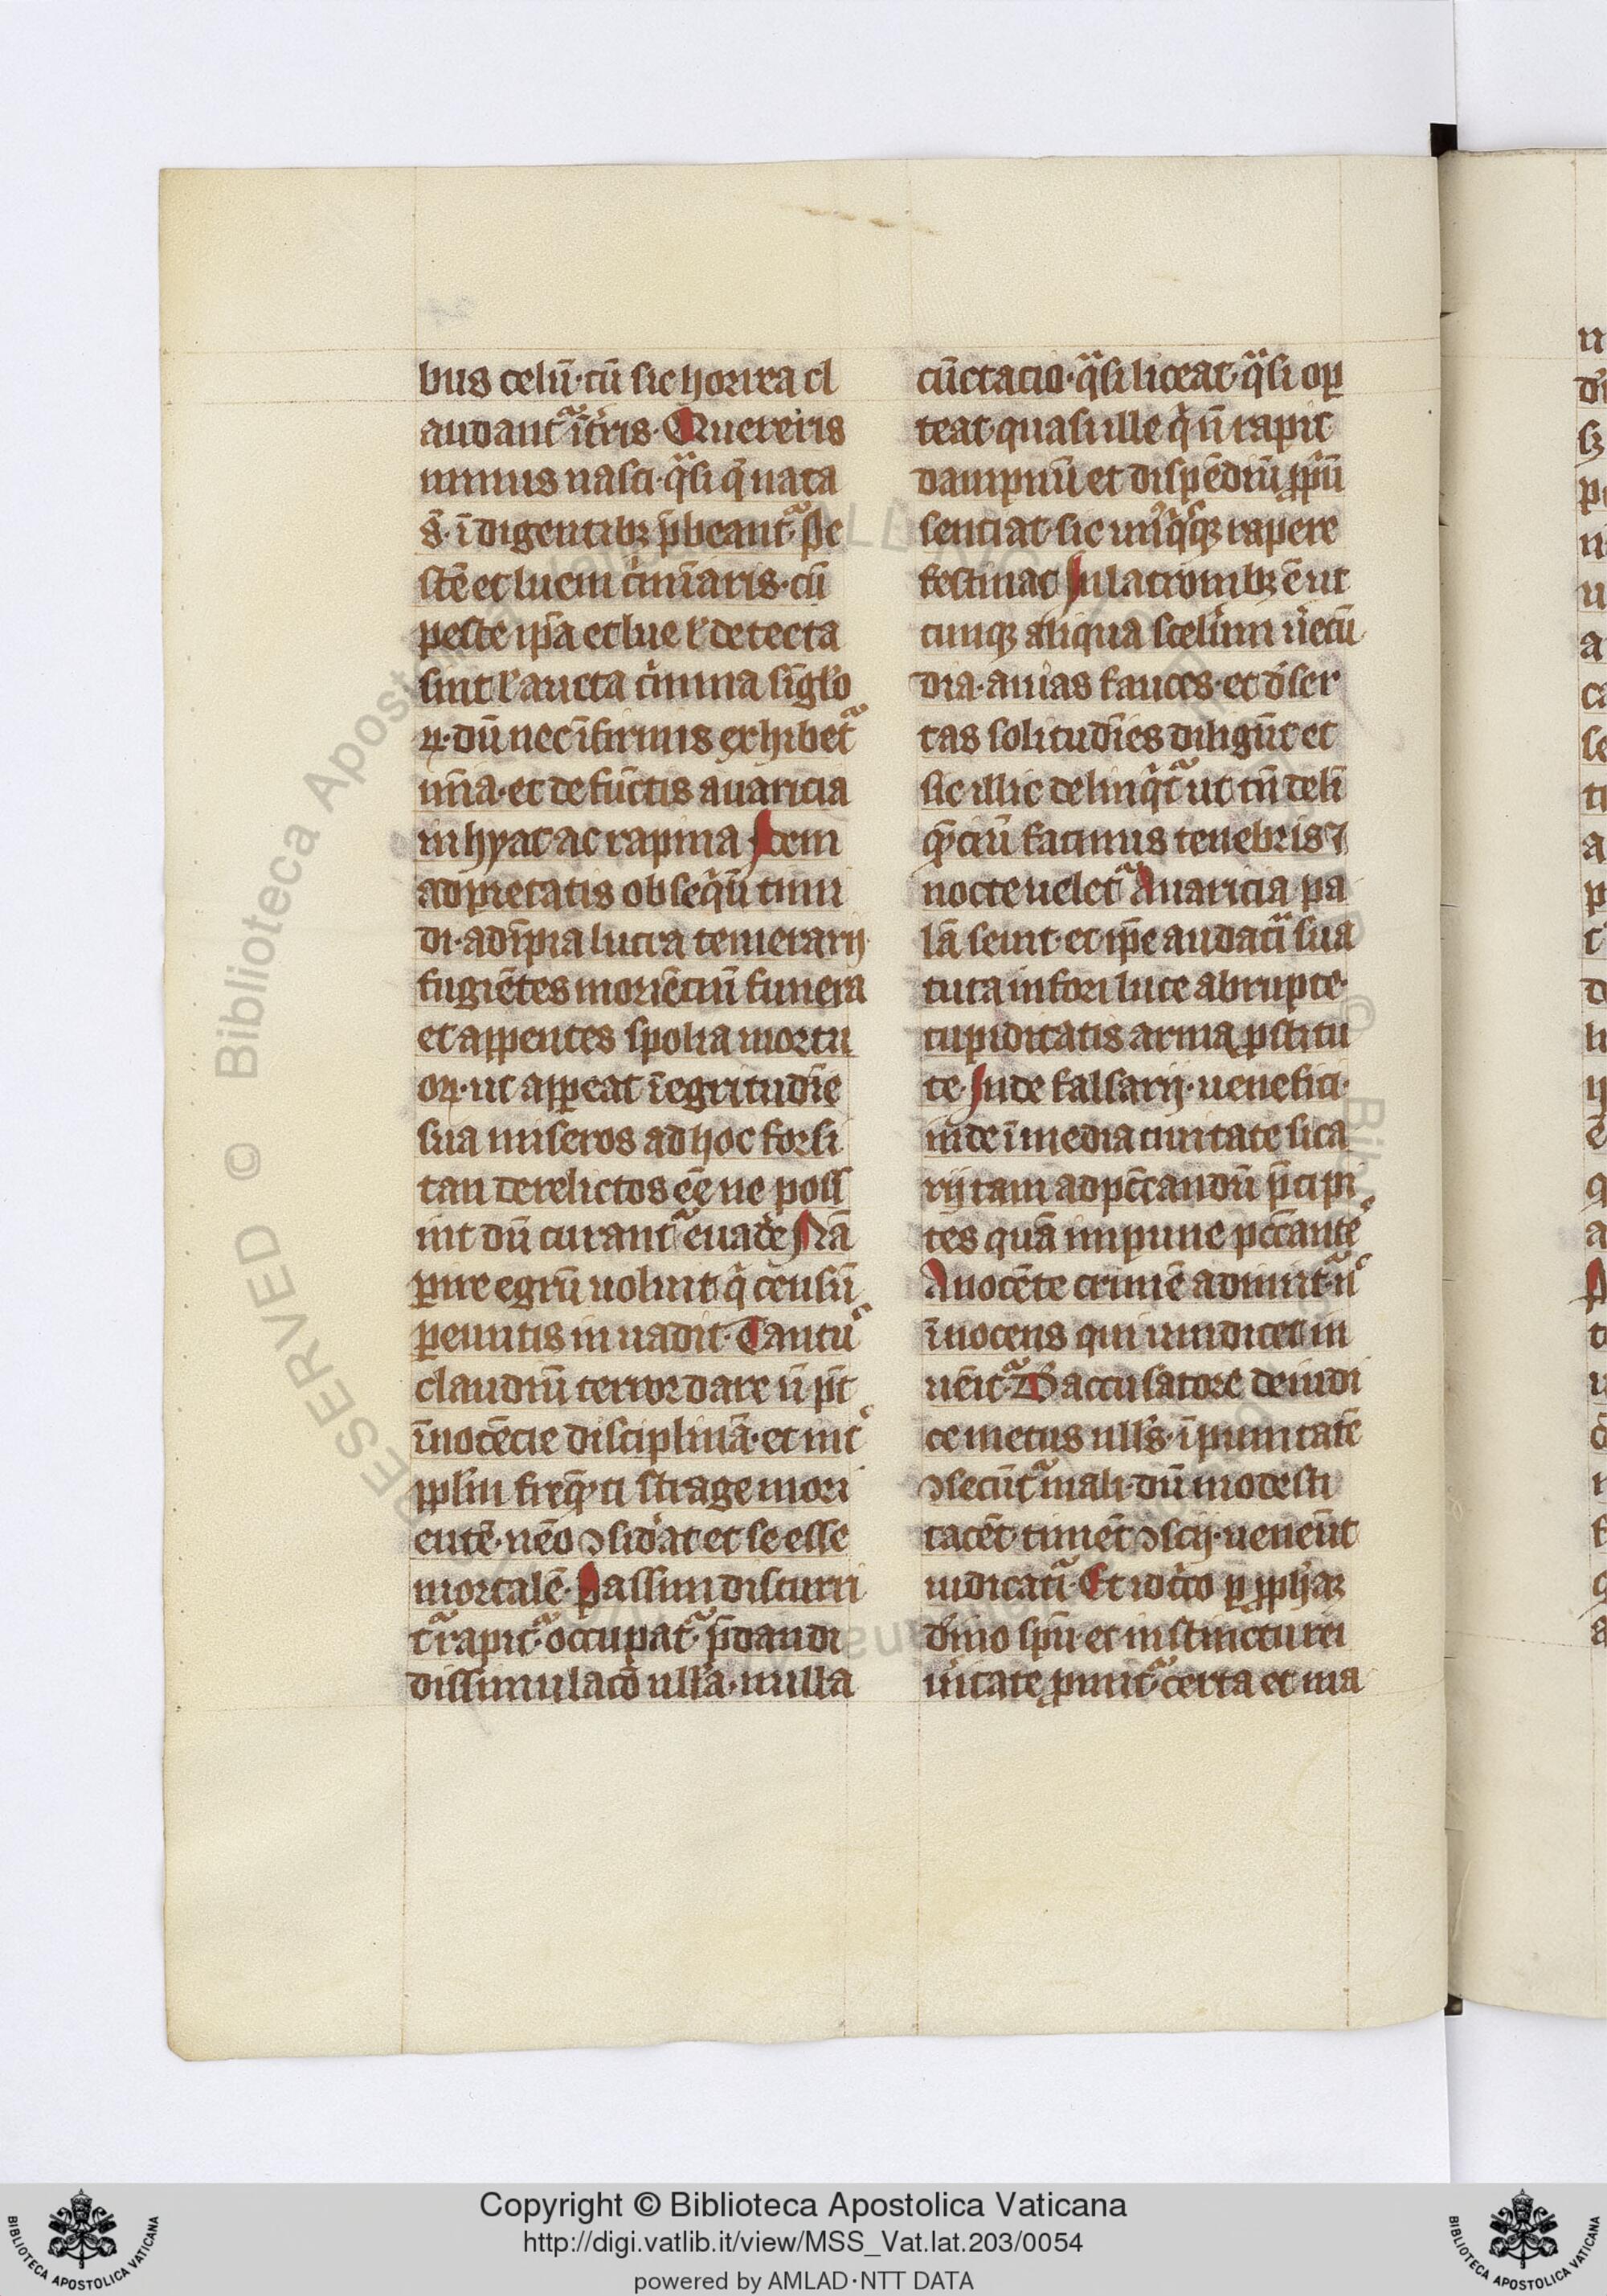 bus celū·cū sic horrea cl
audant᷑ ĩ t̾ris· Quereris
minus nasci·q̃si q̄ nata
s̄·ĩdigentibꝫ p̄beant᷑·Pe
stē et luem c̾mĩaris·cū
peste ip̃a et lue ł detecta
sint ł aucta c̾mina sĩglo
ꝝ·dū nec ĩfirmis exhibet᷑
mĩa·et defūctis auaricia
inhyat ac rapina Idem
ad pietatis obseqͥū timi
di·ad ĩpia lucra temerarij·
fugiētes moriēciū funera
et appetentes spolia mortu
oꝝ·ut appeat ĩ egritudĩe
sua miseros ad hoc forsi
tan derelictos eẽ ne poss
int dū curant᷑ euad̾e Nā
ꝑire egrū voluit qͥ censū
ꝑeuntis in uadit·Tantuꝰ
cladiū terror dare ñ pt̄
ĩnocẽcie disciplinā·et int̾
pplm̄ freq̄ti strage mori
entē·nēo ↄsid̾at et se esse
mortalē·Passim discurri
t᷑ rapit᷑·occupat᷑·p̄dandi
dissimulacō ulla·nulla
cūctacio·q̃si liceat·q̃si oꝑ
teat·quasi ille qͥ ñ rapit
dampnū et dispēdiū ꝓpͥū
senciat·sic unꝰqͥsqꝫ rapere
festinat In latronibꝫ ē ut
cunqꝫ aliqua scel̾um u̾ecū
dia·auias fauces·et d̾ser
tas solitudĩes diligūt et
sic illic delinqͥt᷑ ut tñ deli
q̄ciū facinus tenebris ⁊
nocte uelet᷑ Auaricia pa
lā seuit·et ip̃e audacͥ sua
tuta in fori luce abrupte·
cupiditatis arma ꝓstitu
te·Inde falsarij·uenefici·
inde ĩ media ciuitate sica
rij tam ad pc̄candū p̄cipi
tes quā impune pc̄cantesꝰ
A nocēte crimē admitt᷑·nͨ
ĩnocens qui uindicet in
uēit᷑ De accusatore de iudi
ce metus ullꝰs·ĩpunitatē
ↄsecūt᷑ mali·dū modesti
tacēt·timēt ↄscij·ueneūt
iudicatͥ Et idc̾co ꝑ ꝓph̾aꝫ
diuĩo spū·et instinctu rei
u̾itate ꝓmit᷑·certa et ma